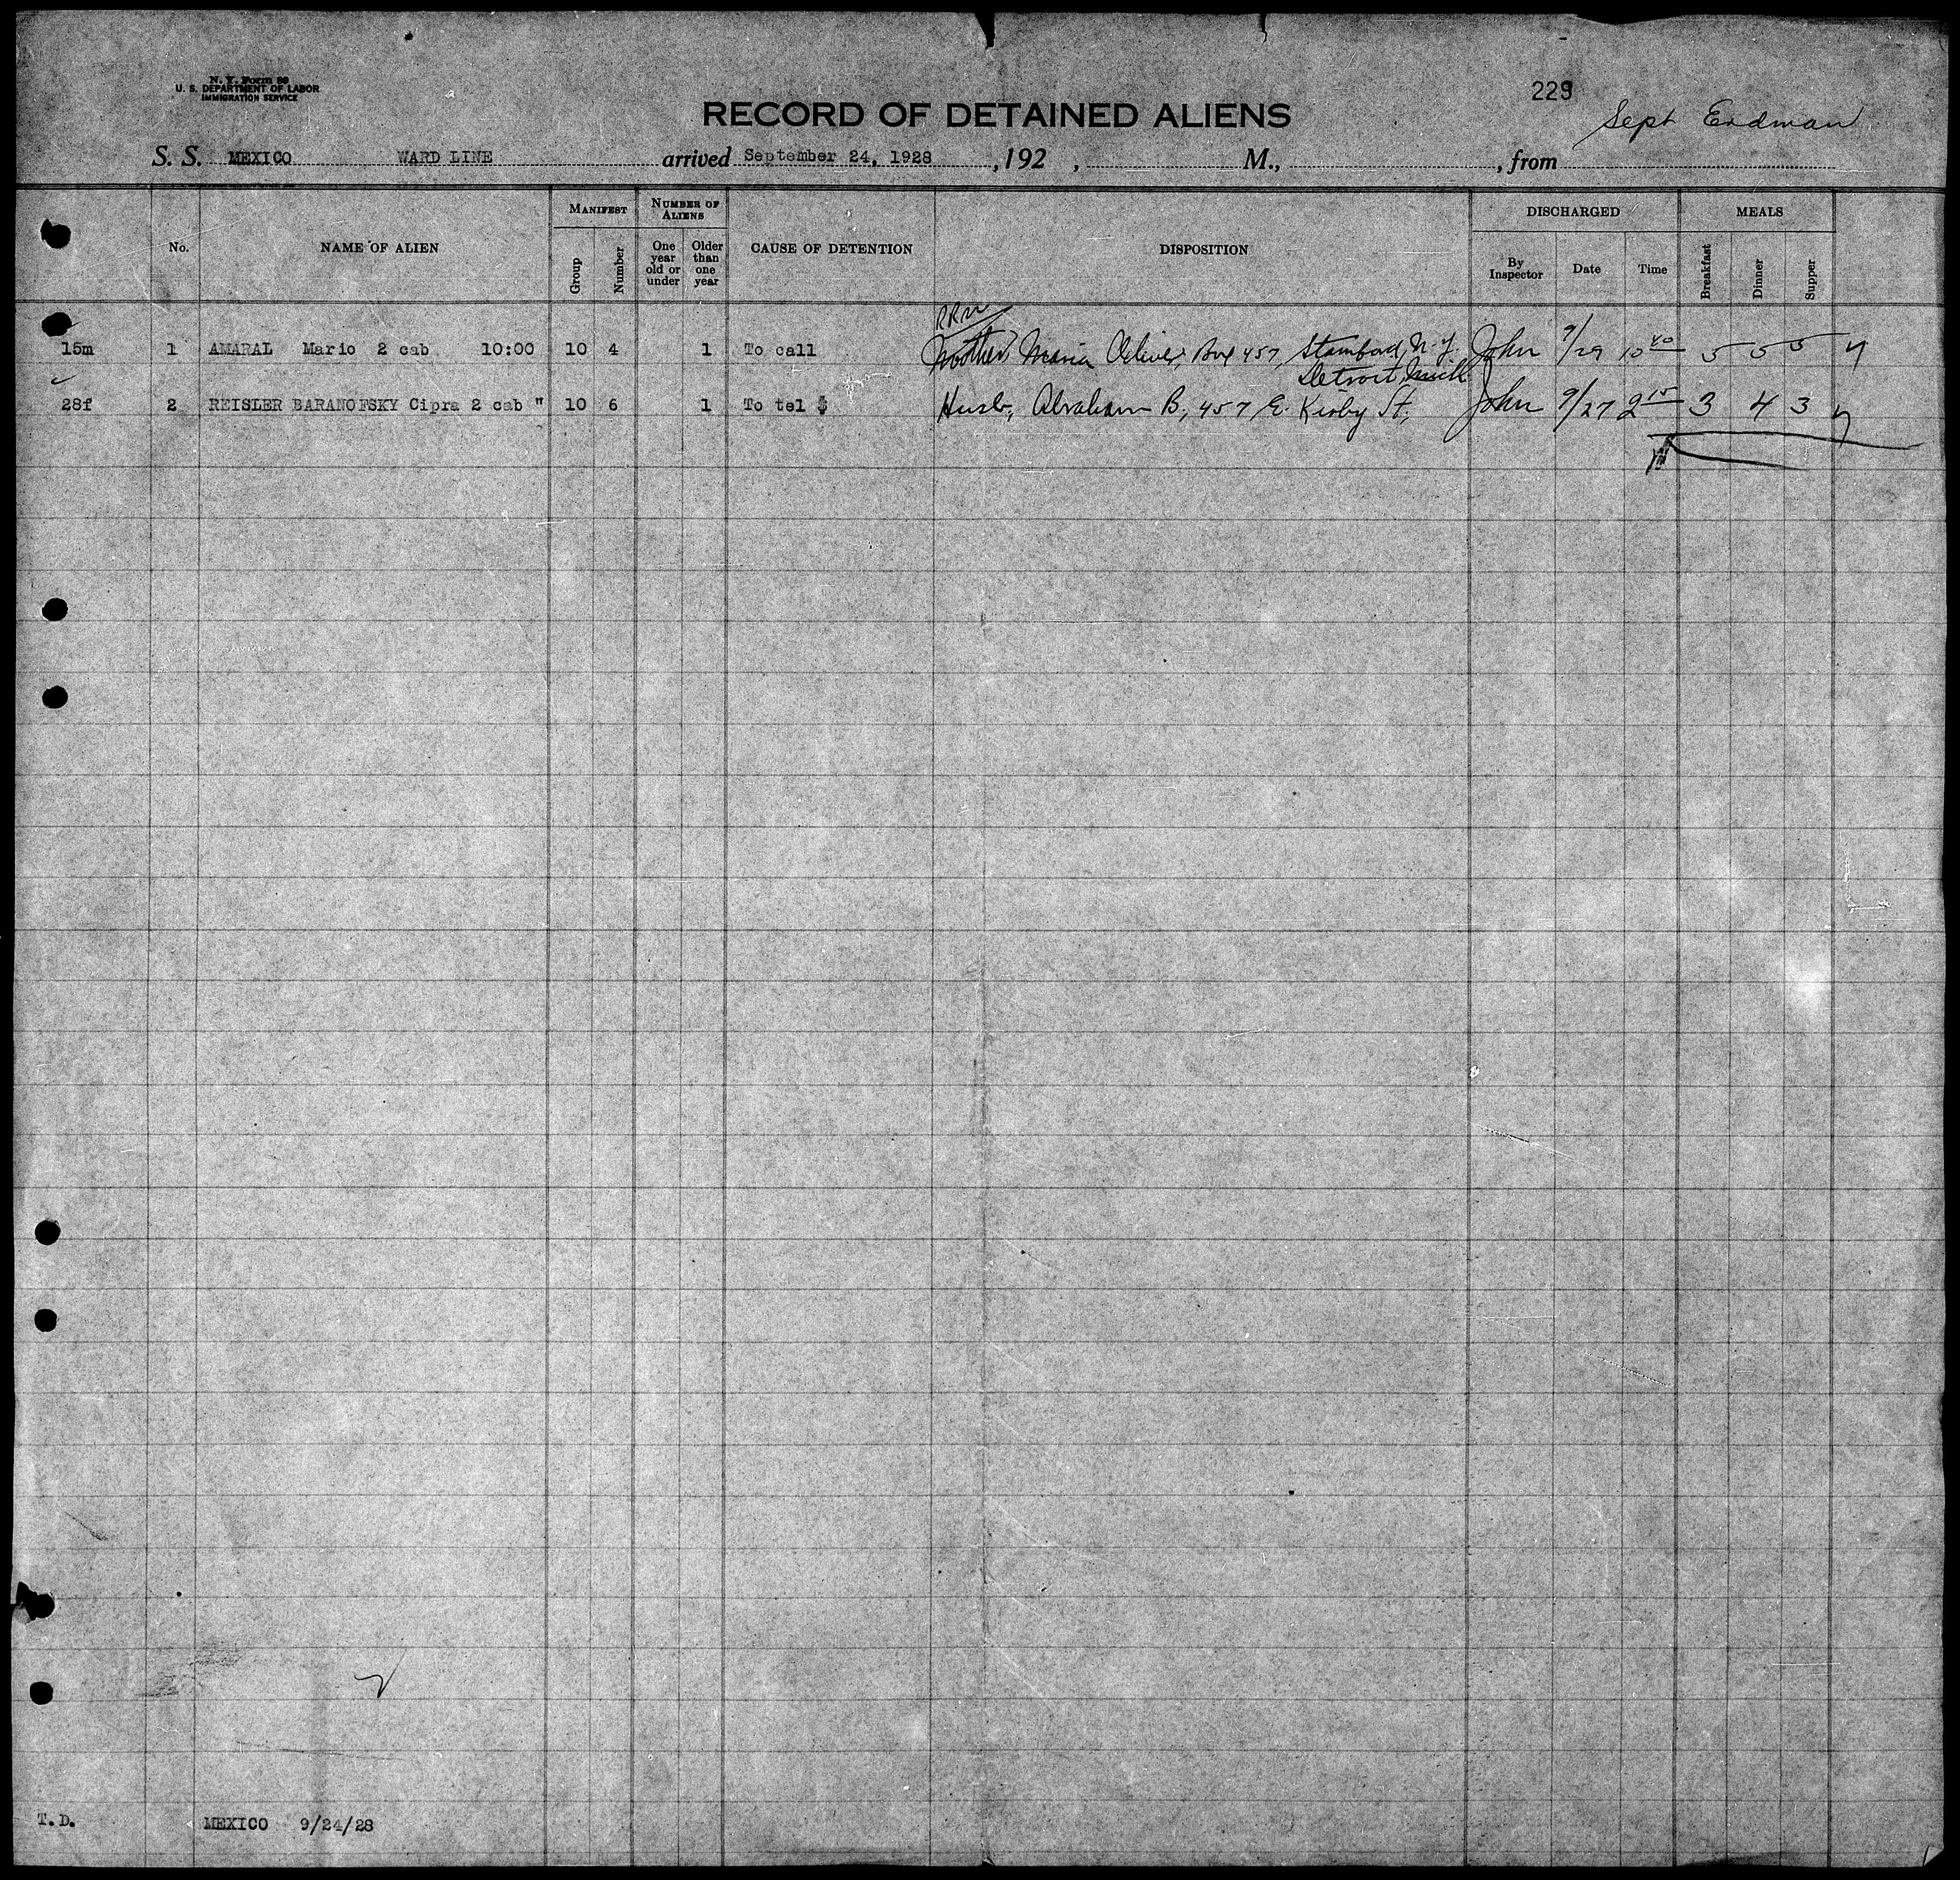 N. Y. Form 89
U. S. DEPARTMENT OF LABOR
IMMIGRATION SERVICE
229
RECORD OF DETAINED ALIENS
Sept Erdman
S. S. MEXICO WARD LINE arrived September 24, 1928, 192 , M., , from
No. NAME OF ALIEN MANIFEST Group Number NUMBER OF ALIENS One year old or under Older than one year CAUSE OF DETENTION DISPOSITION DISCHARGED By Inspector Date Time MEALS Breakfast Dinner Supper
15m 1 AMARAL Mario 2 cab 10:00 10 4 1 To call Mother, Maria Box 457, Stamford, N.Y. John 9/29 10 40 5 5 5
Detroit, Mich
28f 2 REISLER BARANOFSKY Cipra 2 cab " 10 6 1 To tel $ Husb, Abraham B, 457 E. Kirby St. John 9/27 2 15 3 4 3
T.D. MEXICO 9/24/28